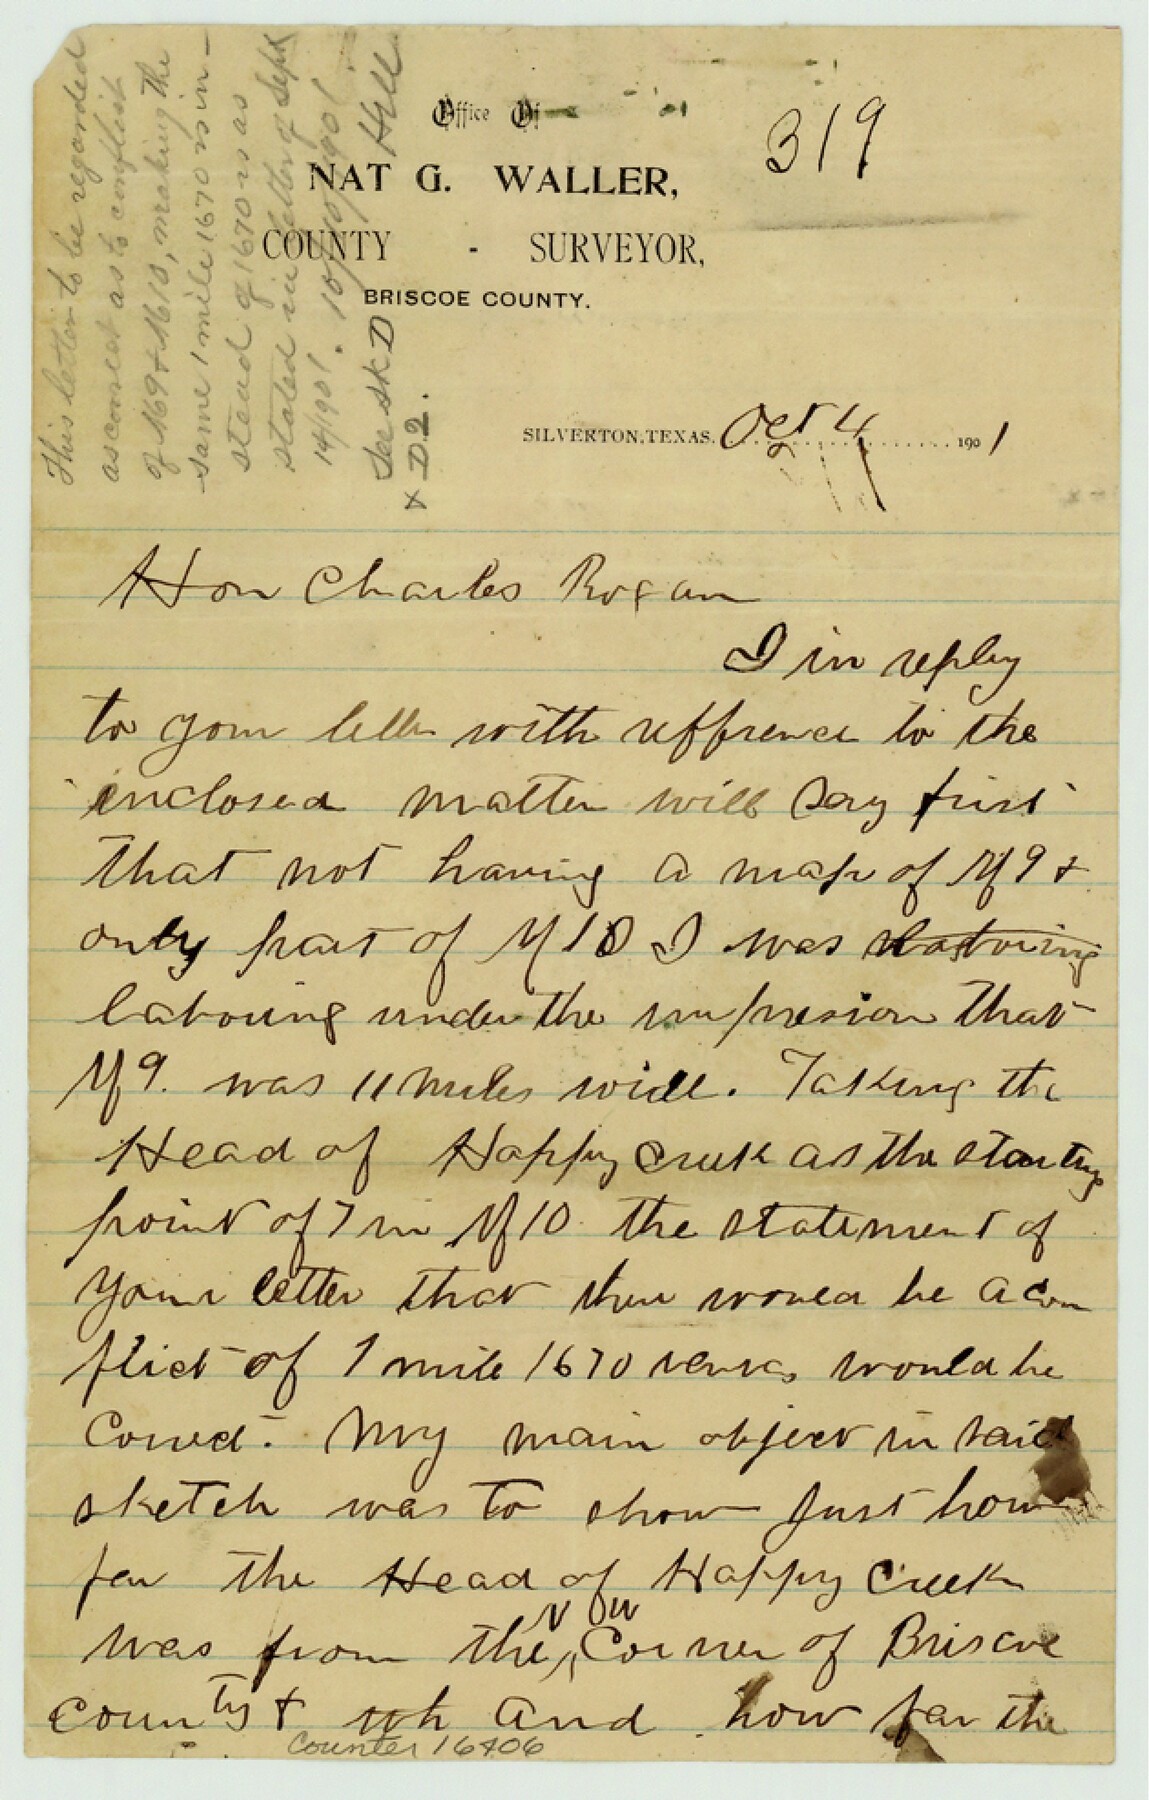 Office Of
NAT G. WALLER,
COUNTY - SURVEYOR,
BRISCOE COUNTY.
319
SILVERTON, TEXAS. Oct 4 1901
This letter to be regarded
as correct as to conflict
of M9 & M10, making the
same 1 mile 1670 vs in-
stead of 1670 vs as
stated in letter of Sept
14/1901. 10/10/1901
Hill
See sk D
& D2.
Hon Charles Rogan
I in reply
to your letter with refference to the
inclosed matter will say first
that not having a map of M9 &
only part of M10 I was
labouring under the impresion that
M9. was 11 miles wide. Taking the
Head of Happy Creek as the starting
point of 7 in M10 the statement of
your letter that there would be a con
flict of 1 mile 1670 varas would be
Correct. My main object in said
sketch was to show just how
far the Head of Happy Creek
was from the N W Corner of Briscoe
County & wh and how far the
Counter 16406